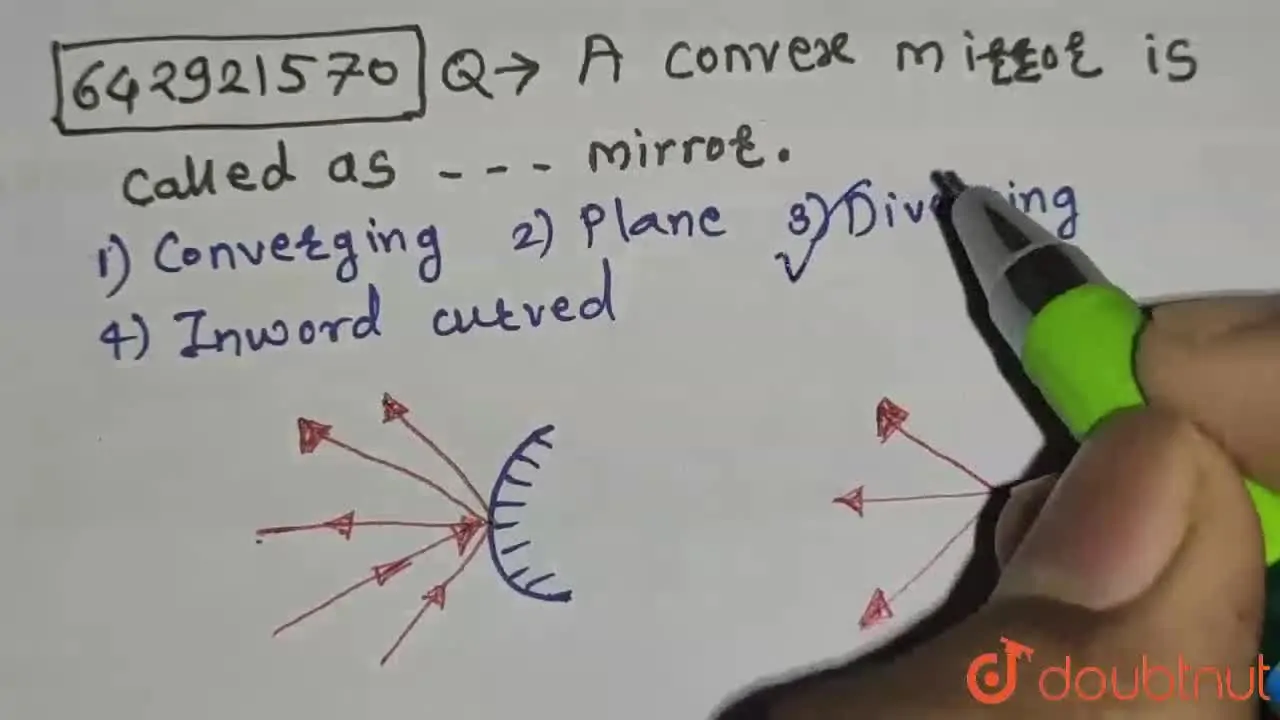 642921570 Q→ A convex mirror is
called as - - - mirror.
1) Converging 2) Plane 3) Div ing
4) Inword curved
doubtnut